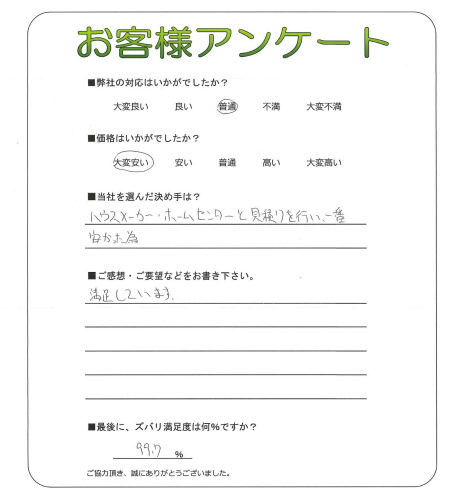 お客様アンケート
■弊社の対応はいかがでしたか？
大変良い　良い　普通　不満　大変不満
■価格はいかがでしたか？
大変安い　安い　普通　高い　大変高い
■当社を選んだ決め手は？
ハウスメーカー・ホームセンターと見積りを行い、一番
安かった為
■ご感想・ご要望などをお書き下さい。
満足しています。
■最後に、ズバリ満足度は何%ですか？
99.7 %
ご協力頂き、誠にありがとうございました。